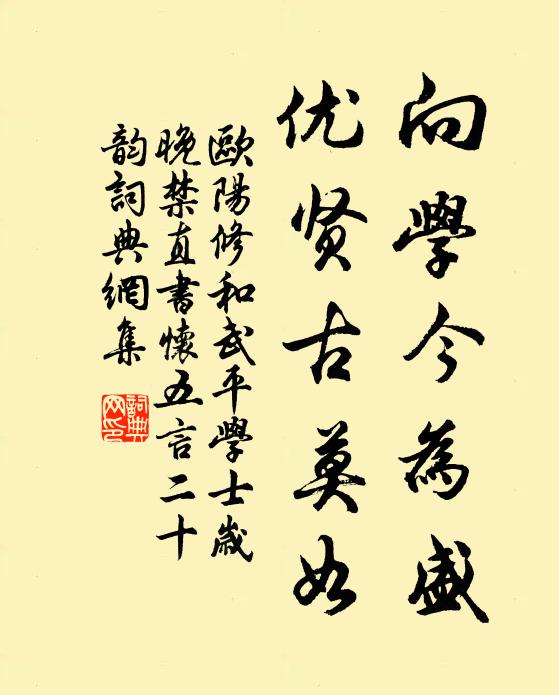 向學今為盛
优贤古莫如
歐陽修和武平學士歲
晚禁直書懷五言二十
韵詞典網集
詞典
网印